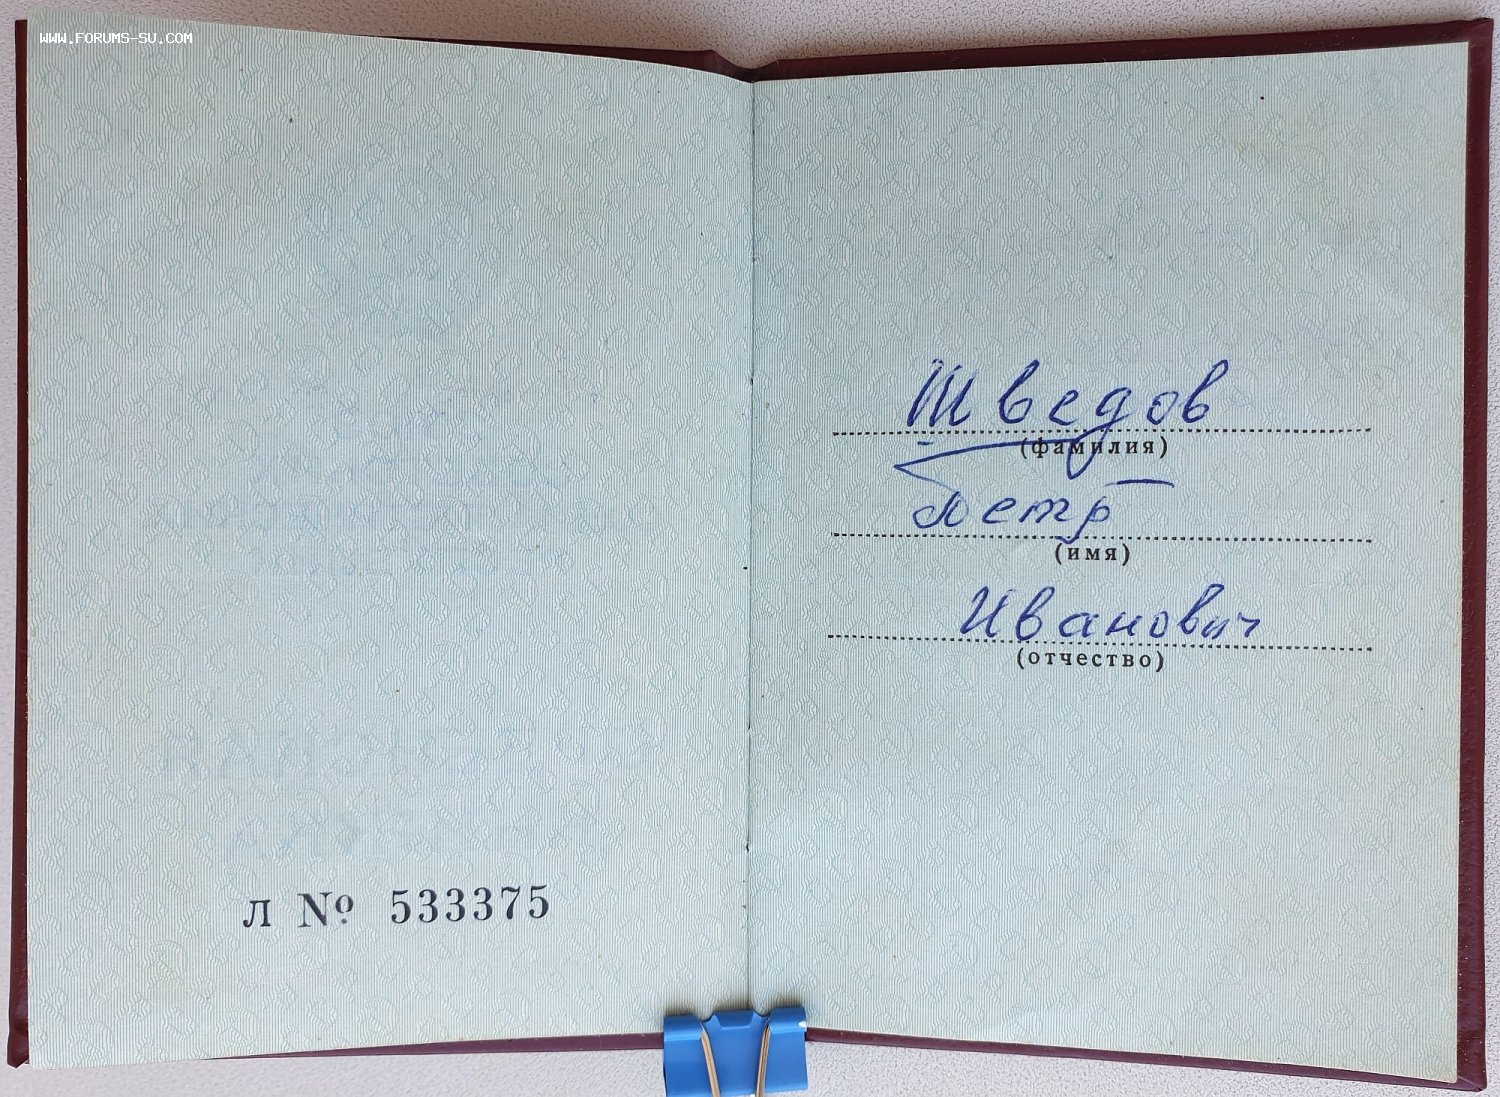 WWW.FORUMS-SU.COM
Л № 533375
Шведов
(фамилия)
Петр
(имя)
Иванович
(отчество)